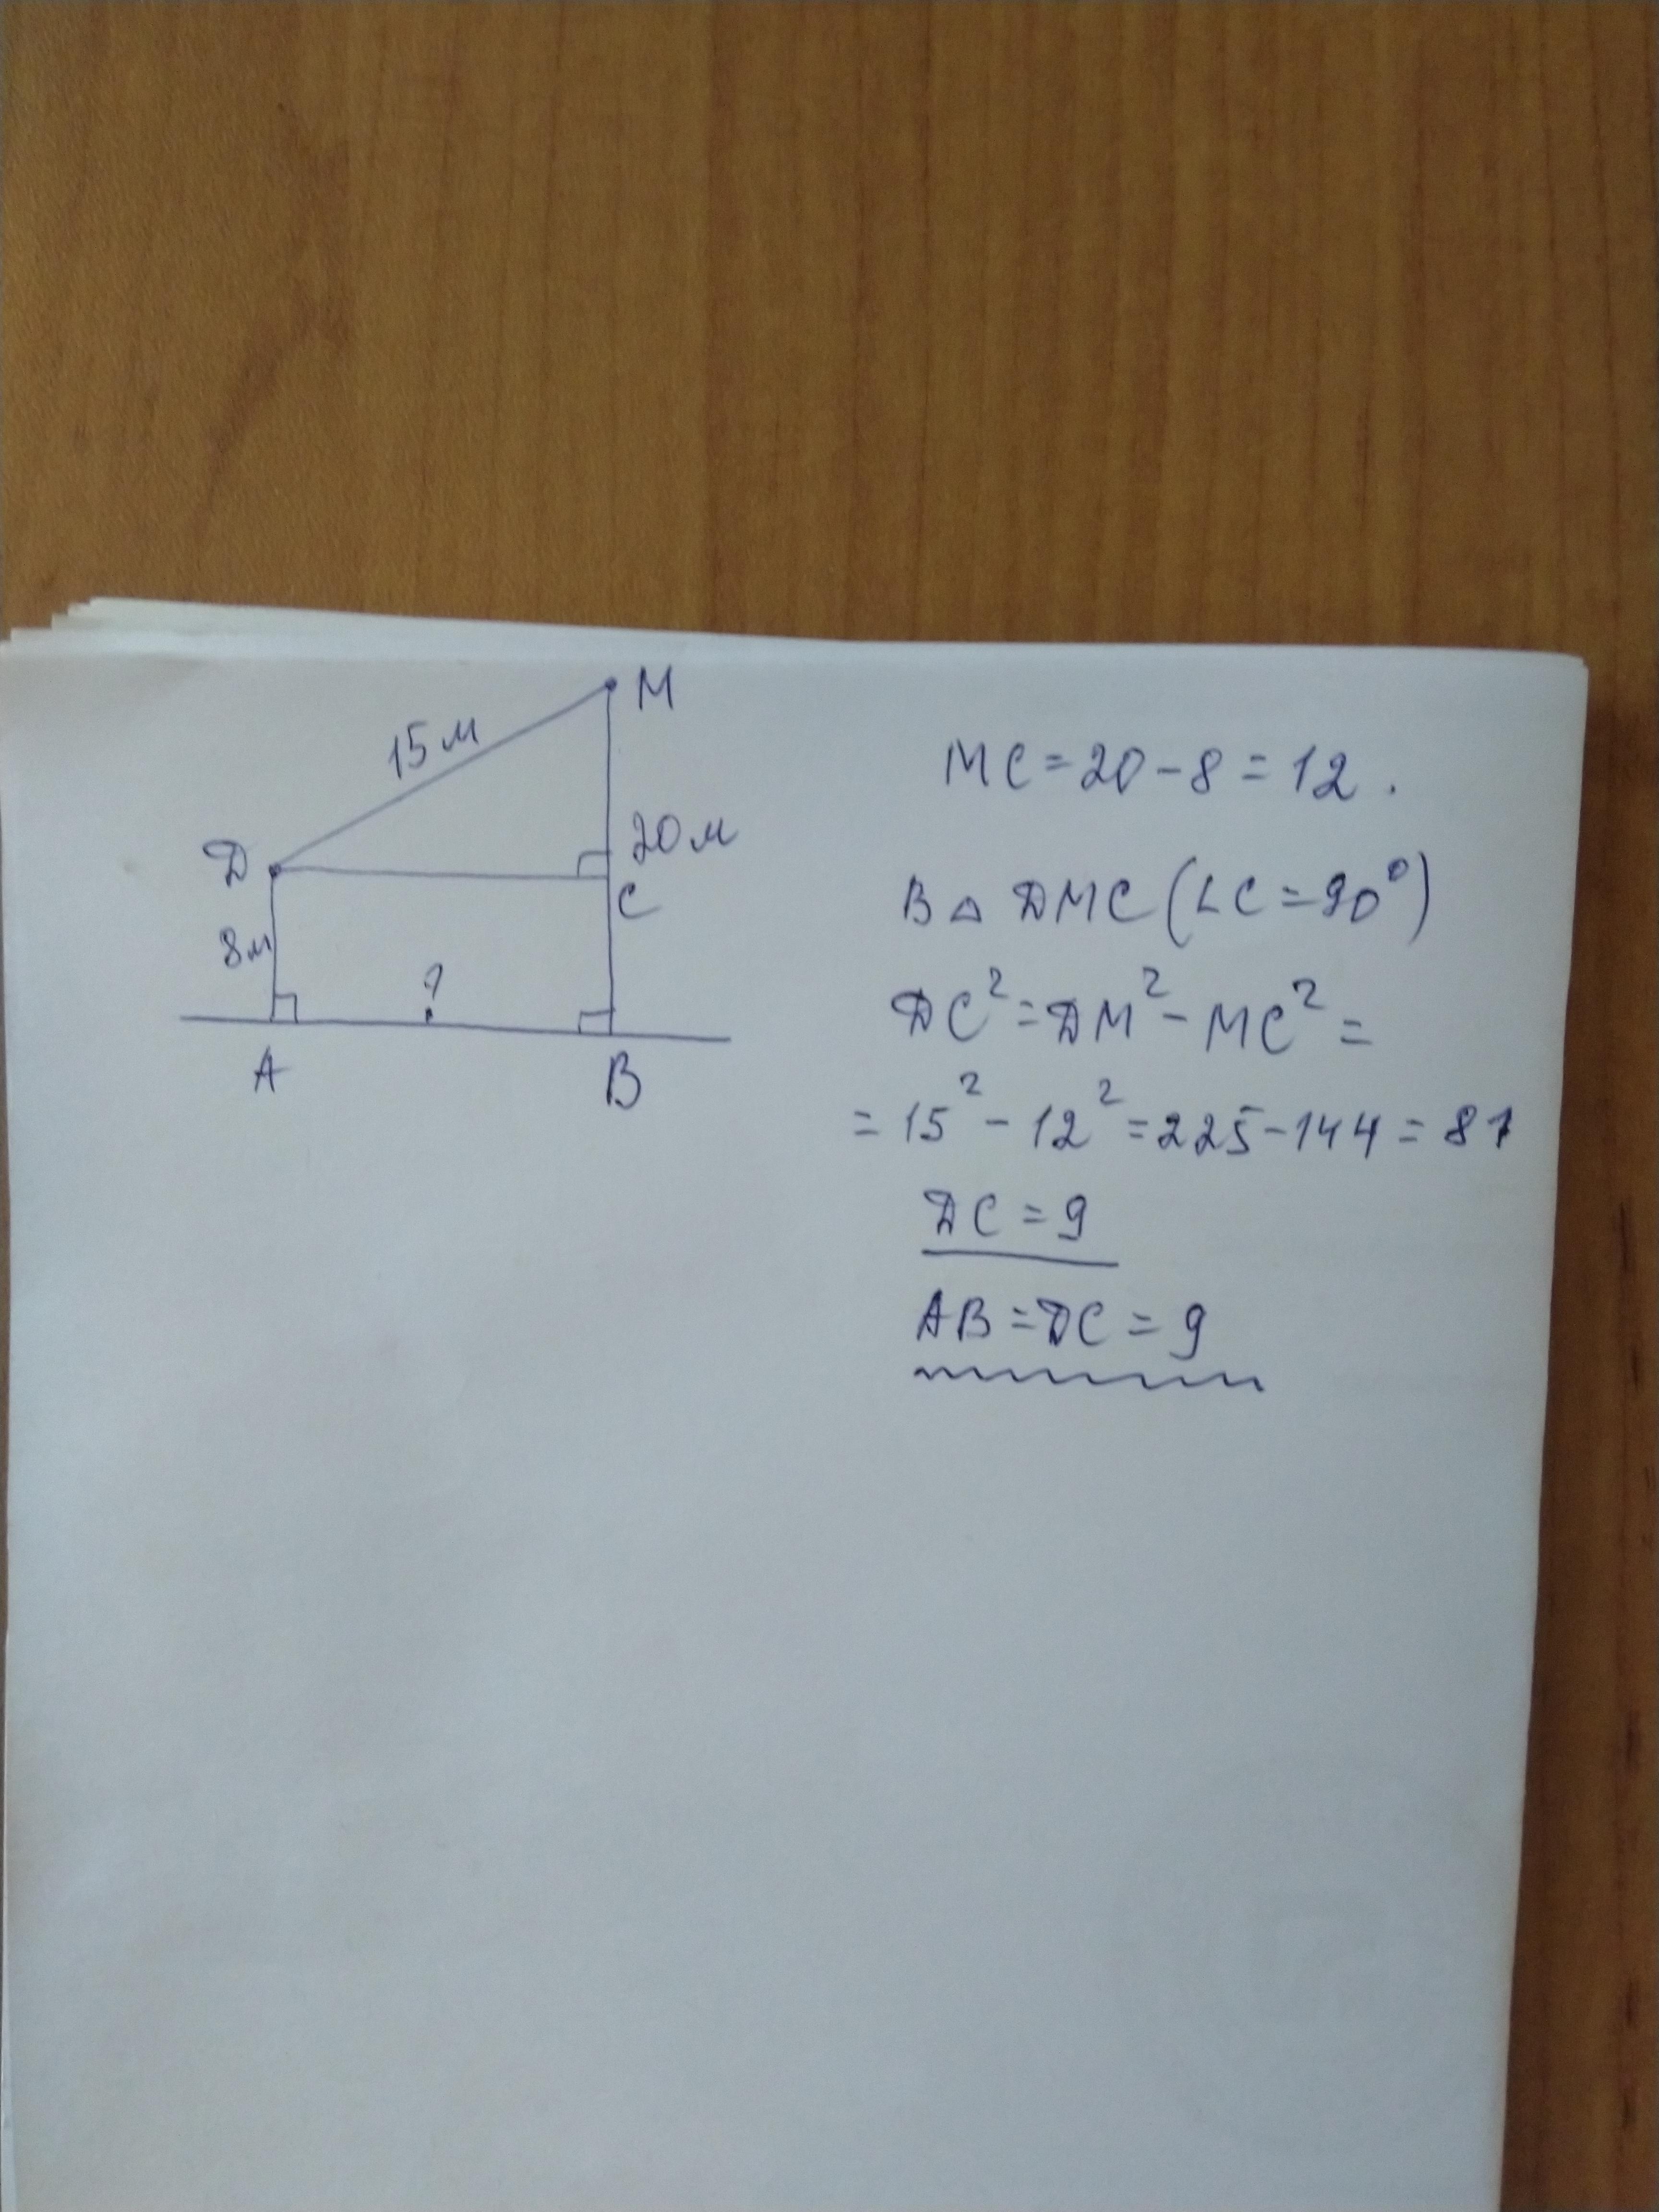 M
15 м
20 м
D
C
8 м
?
A
B
MC = 20 - 8 = 12.
В △ DMC (∠C = 90°)
DC² = DM² - MC² =
= 15² - 12² = 225 - 144 = 81
DC = 9
AB = DC = 9